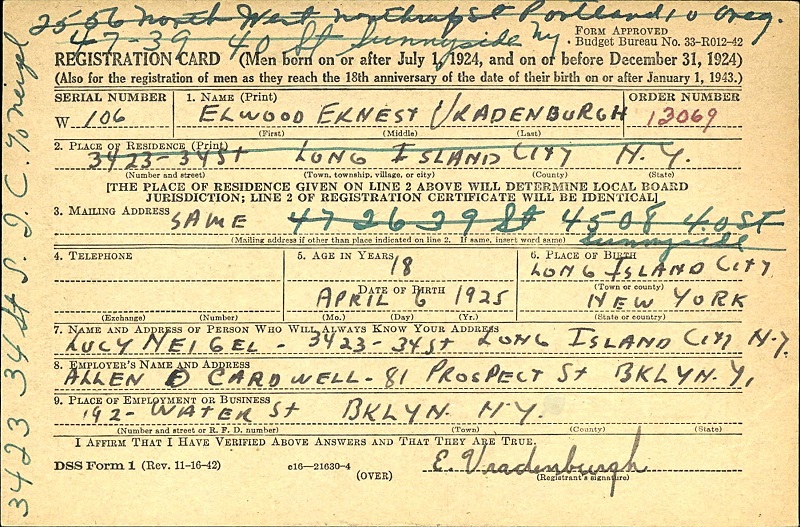 2556 North West Northrup St Portland 10 Oreg.
47-39 40 St Sunnyside Ny
FORM APPROVED
Budget Bureau No. 33-R012-42
REGISTRATION CARD (Men born on or after July 1, 1924, and on or before December 31, 1924)
(Also for the registration of men as they reach the 18th anniversary of the date of their birth on or after January 1, 1943.)
SERIAL NUMBER 1. NAME (Print) ORDER NUMBER
W 106 ELWOOD ERNEST VRADENBURGH 13069
(First) (Middle) (Last)
2. PLACE OF RESIDENCE (Print)
3423-34 St LONG ISLAND CITY N.Y.
(Number and street) (Town, township, village, or city) (County) (State)
[THE PLACE OF RESIDENCE GIVEN ON LINE 2 ABOVE WILL DETERMINE LOCAL BOARD
JURISDICTION; LINE 2 OF REGISTRATION CERTIFICATE WILL BE IDENTICAL]
3. MAILING ADDRESS
SAME 4726 39 St 4508 40 St
Sunnyside
(Mailing address if other than place indicated on line 2. If same, insert word same)
4. TELEPHONE 5. AGE IN YEARS 6. PLACE OF BIRTH
18 LONG ISLAND CITY
DATE OF BIRTH (Town or county)
APRIL 6 1925 NEW YORK
(Exchange) (Number) (Mo.) (Day) (Yr.) (State or country)
7. NAME AND ADDRESS OF PERSON WHO WILL ALWAYS KNOW YOUR ADDRESS
LUCY NEIGEL - 3423-34 St LONG ISLAND CITY N.Y.
8. EMPLOYER'S NAME AND ADDRESS
ALLEN D CARDWELL - 81 PROSPECT St BKLYN. Y.
9. PLACE OF EMPLOYMENT OR BUSINESS
192- WATER St BKLYN. N.Y.
(Number and street or R. F. D. number) (Town) (County) (State)
I AFFIRM THAT I HAVE VERIFIED ABOVE ANSWERS AND THAT THEY ARE TRUE.
DSS Form 1 (Rev. 11-16-42) c16-21630-4 E. Vradenburgh
(OVER) (Registrant's signature)
3423 34 St L. I. C. % Neigel